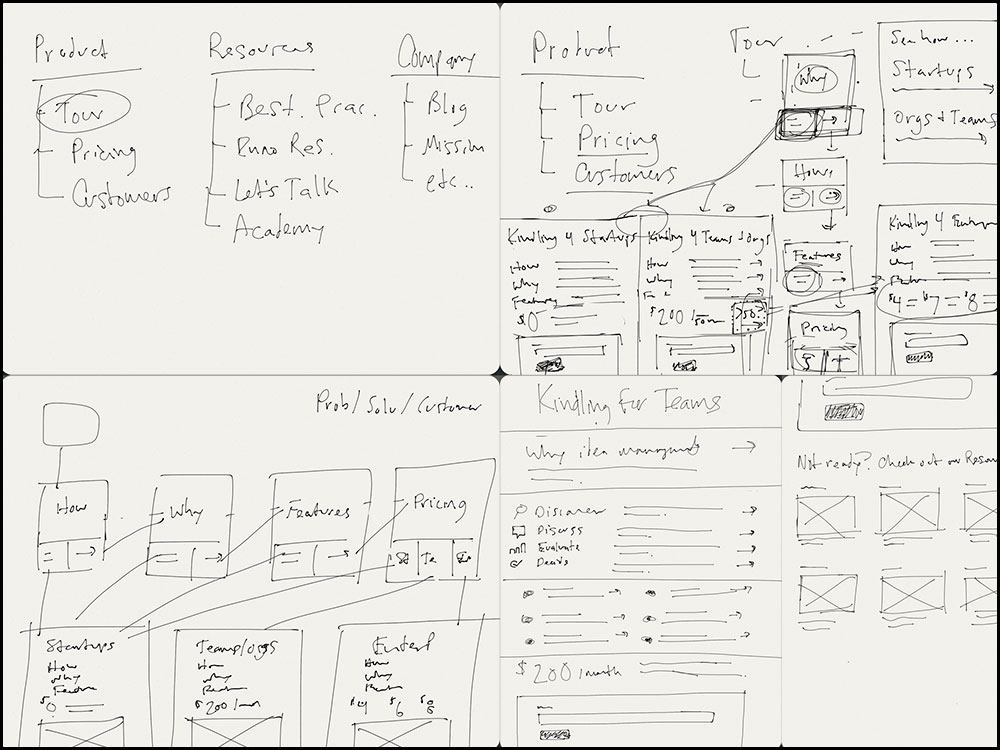 Product
Tour
Pricing
Customers
Resources
Best. Prac.
Res.
Let's Talk
Academy
Company
Blog
Mission
etc..
Product
Tour
Pricing
Customers
Tour
Why
How
Features
Pricing
See how...
Startups
Orgs & Teams
Kindling 4 Startups
How
Why
Features
$0
Kindling 4 Teams & Orgs
How
Why
$200/
Kindling 4
How
Why
$4 = $7 = $8 =
Prob/Solu/Customer
How
Why
Features
Pricing
St
Te
Startups
How
Why
Feature
$0
Teams/orgs
How
Why
$200/mon
Enter
How
Why
$4 $6 $8
Kindling for Teams
Why idea management
Discover
Discuss
Evaluate
Decide
$200/month
Not ready? Check out our Resour